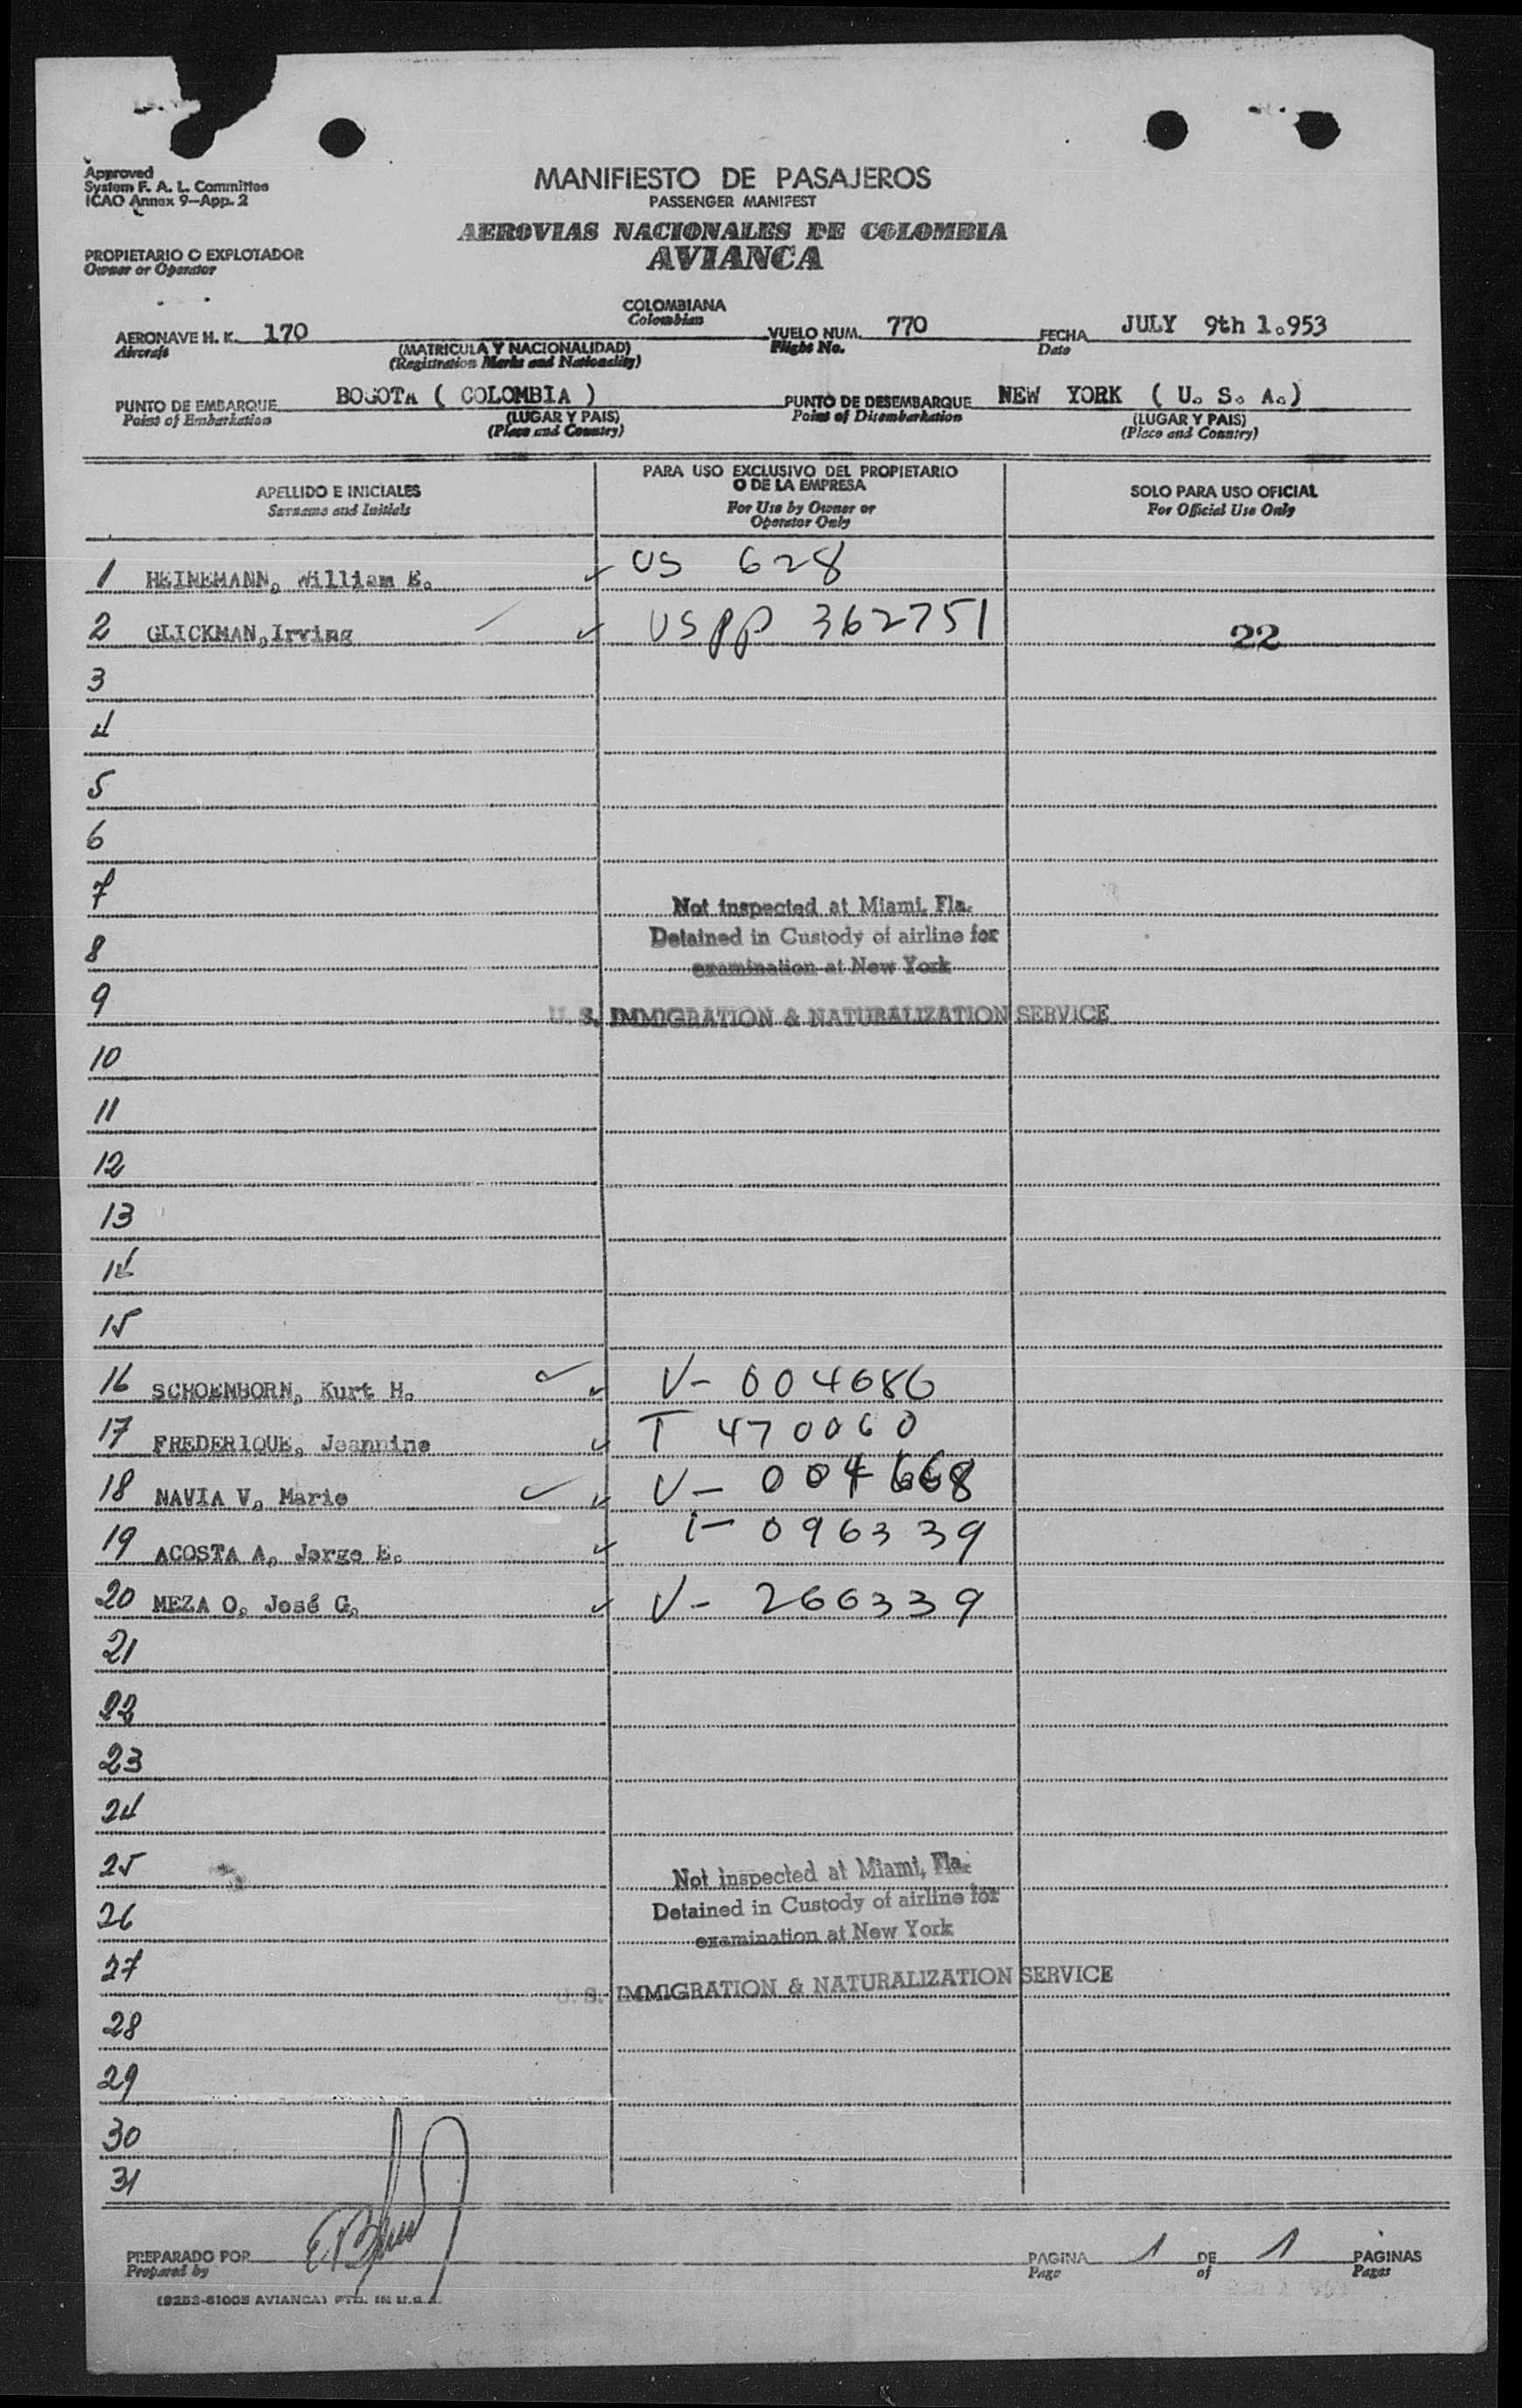 Approved
System F. A. L. Committee
ICAO Annex 9-App. 2
MANIFIESTO DE PASAJEROS
PASSENGER MANIFEST
AEROVIAS NACIONALES DE COLOMBIA
AVIANCA
PROPIETARIO O EXPLOTADOR
Owner or Operator
COLOMBIANA
Colombian
AERONAVE H. K. 170 VUELO NUM. 770 FECHA JULY 9th 1.953
Aircraft (MATRICULA Y NACIONALIDAD) Flight No. Date
(Registration Marks and Nationality)
PUNTO DE EMBARQUE BOGOTA ( COLOMBIA ) PUNTO DE DESEMBARQUE NEW YORK ( U. S. A.)
Point of Embarkation (LUGAR Y PAIS) Point of Disembarkation (LUGAR Y PAIS)
(Place and Country) (Place and Country)
APELLIDO E INICIALES
Surname and Initials
PARA USO EXCLUSIVO DEL PROPIETARIO
O DE LA EMPRESA
For Use by Owner or
Operator Only
SOLO PARA USO OFICIAL
For Official Use Only
1 HEINEMANN, William E. US 628
2 GLICKMAN,Irving USpp 362751 22
3
4
5
6
7 Not inspected at Miami, Fla.
8 Detained in Custody of airline for
examination at New York
9 U. S. IMMIGRATION & NATURALIZATION SERVICE
10
11
12
13
14
15
16 SCHOENBORN, Kurt H. V- 004686
17 FREDERIQUE, Jeannine T 470060
18 NAVIA V, Mario V- 004668
19 ACOSTA A, Jorge E. T- 096339
20 MEZA O, José G. V- 266339
21
22
23
24
25 Not inspected at Miami, Fla.
26 Detained in Custody of airline for
examination at New York
27 U. S. IMMIGRATION & NATURALIZATION SERVICE
28
29
30
31
PREPARADO POR PAGINA 1 DE 1 PAGINAS
Prepared by Page of Pages
(9253-61005 AVIANCA) PTD. IN U.S.A.